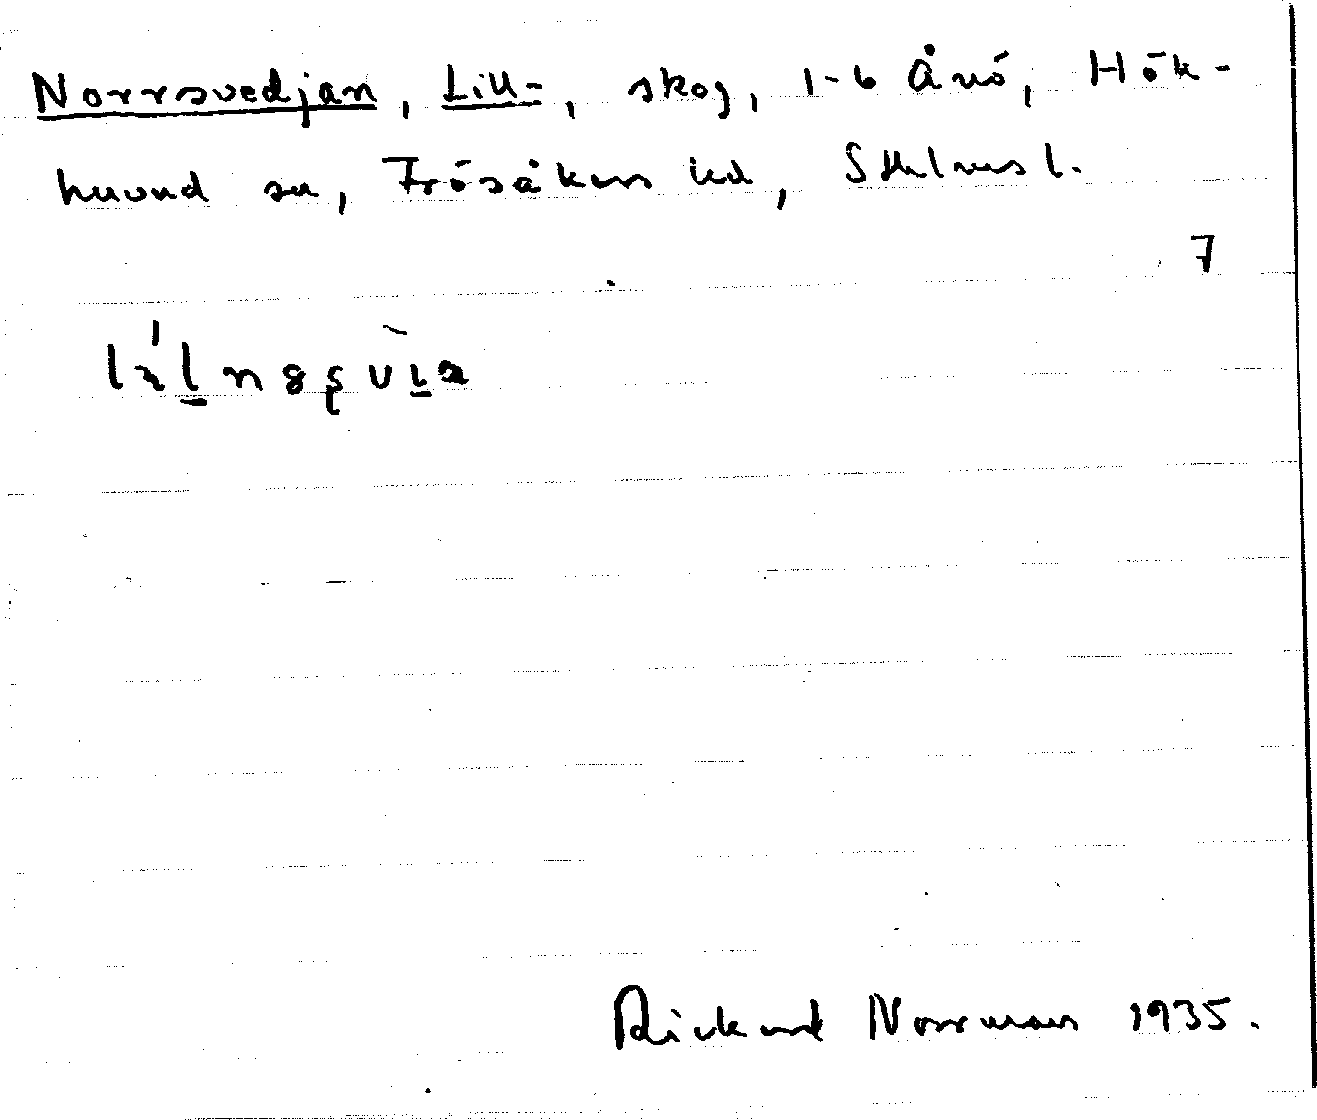 Norrsvedjan, Lill-, skog, 1-6 Ånö, Hök-
huvud sn, Frösåkers hd, Sthlms l.
7
Rickard Norrman 1935.